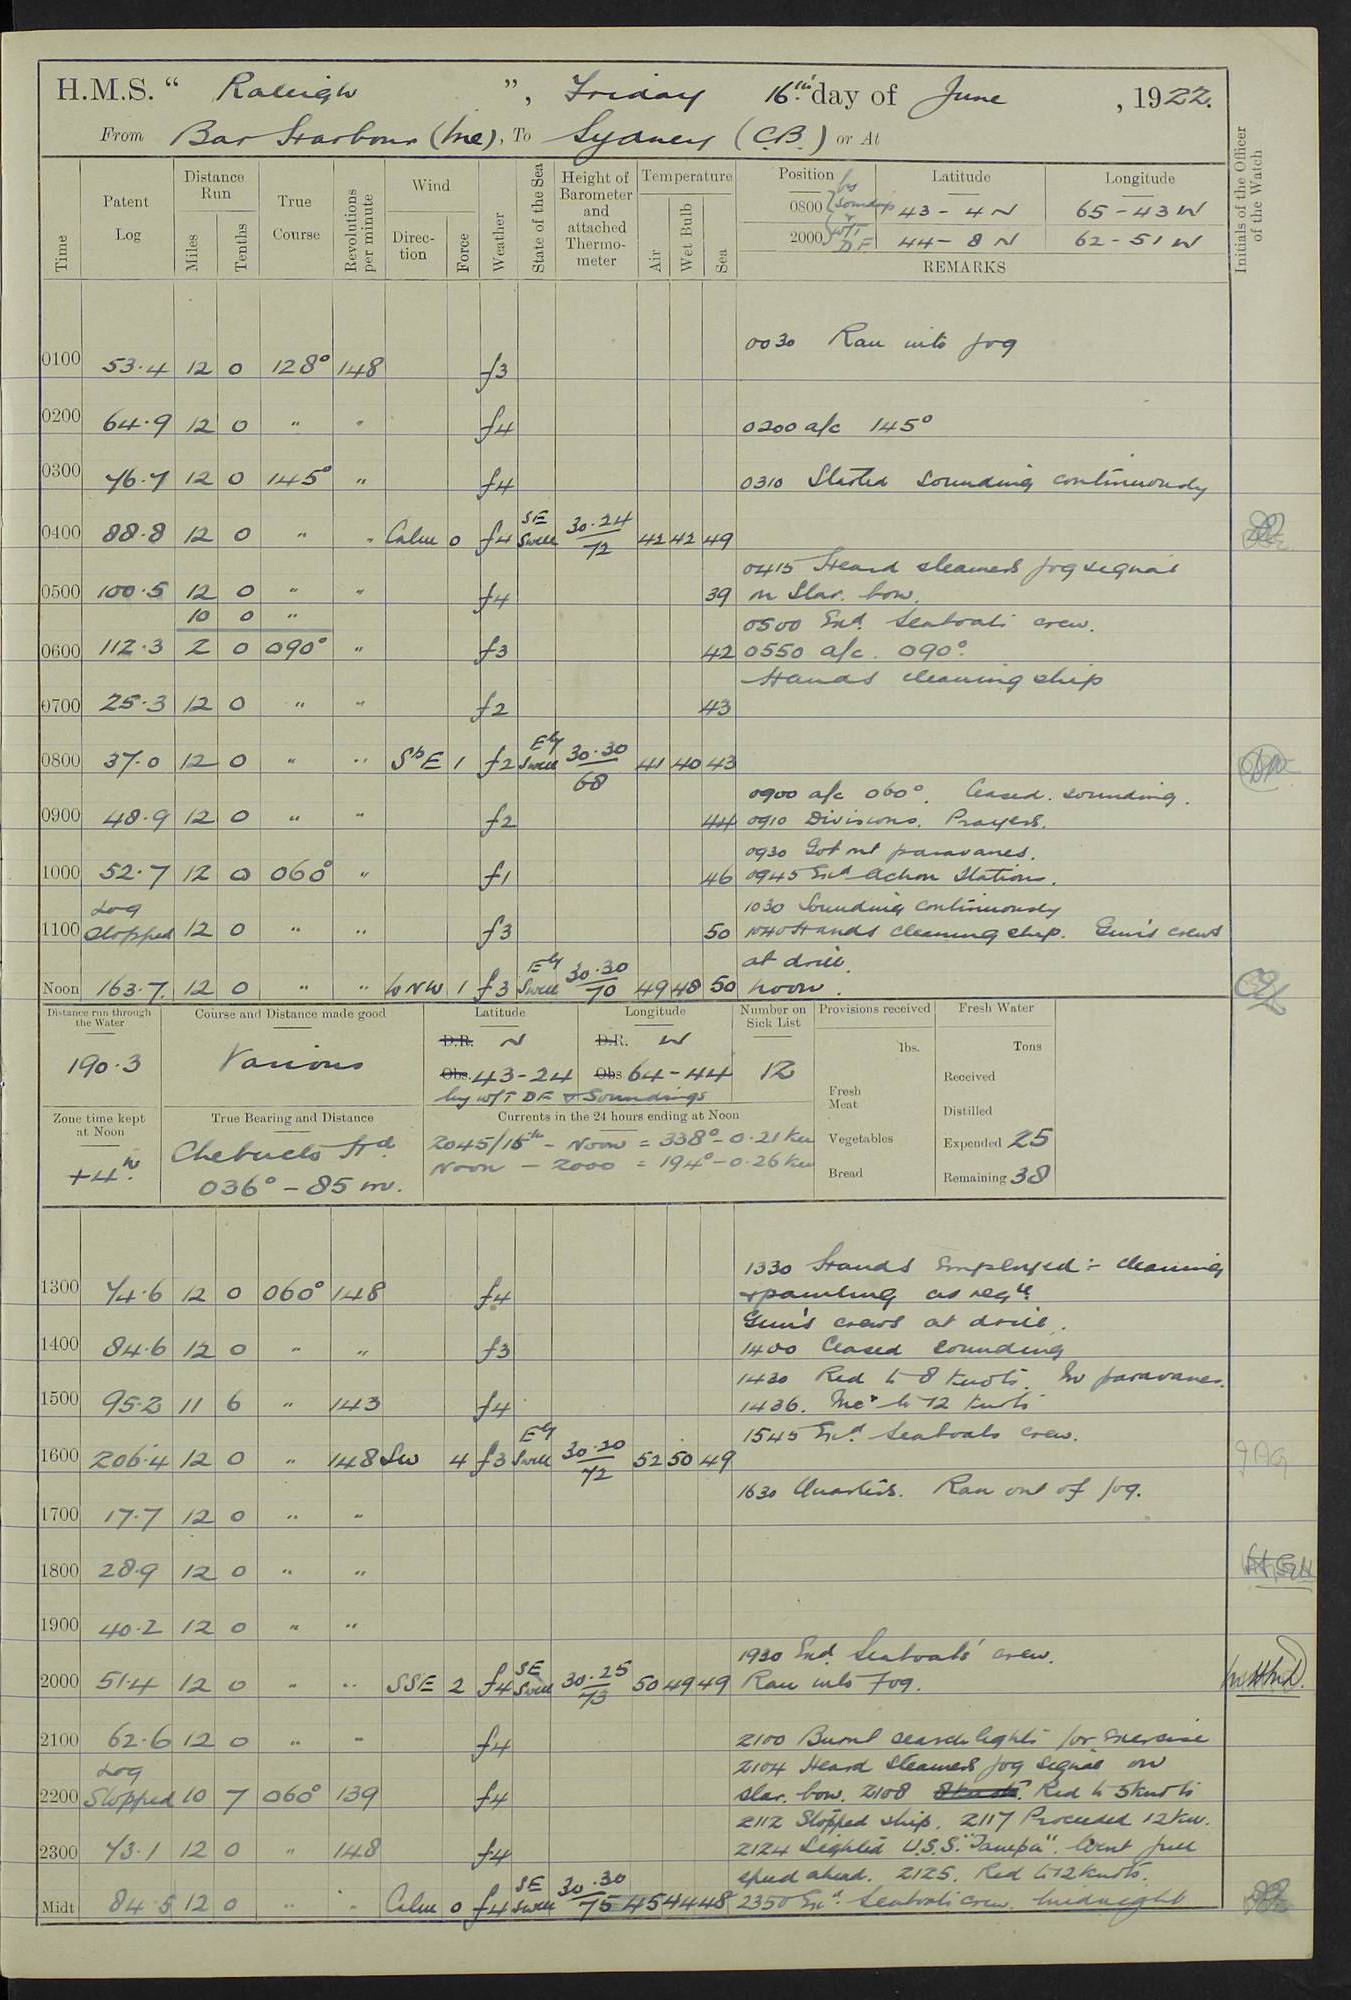 H.M.S. “ Raleigh ”, Friday 16th day of June , 1922.
From Bar Harbour (Me), To Sydney (C.B.) or At
Time
Patent Log
Distance Run
Miles
Tenths
True Course
Revolutions per minute
Wind
Direction
Force
Weather
State of the Sea
Height of Barometer and attached Thermometer
Temperature
Air
Wet Bulb
Sea
Position Latitude Longitude
0800 43 - 4 N 65 - 43 W
by soundings & W/T D.F.
2000 44 - 8 N 62 - 51 W
REMARKS
Initials of the Officer of the Watch
0030 Ran into fog
0100 53.4 12 0 128° 148 f3
0200 64.9 12 0 " " f4 0200 a/c 145°
0300 76.7 12 0 145° " f4 0310 Started sounding continuously
0400 88.8 12 0 " " Calm 0 f4 SE Swell 30.24 72 42 42 49
0415 Heard steamers fog signal
0500 100.5 12 0 " " f4 39 on Star. bow.
10 0 " 0500 Exd. Seaboats crew.
0600 112.3 2 0 090° " f3 42 0550 a/c. 090°.
Hands cleaning ship
0700 25.3 12 0 " " f2 43
0800 37.0 12 0 " " SbE 1 f2 Ely Swell 30.30 68 41 40 43
0900 a/c 060°. Ceased sounding.
0900 48.9 12 0 " " f2 44 0910 Divisions. Prayers.
0930 Got out paravanes.
1000 52.7 12 0 060° " f1 46 0945 Exd Action Stations.
1030 Sounding continuously
1100 Log Stopped 12 0 " " f3 50 1040 Hands cleaning ship. Gun's crews
at drill.
Noon 163.7. 12 0 " " WNW 1 f3 Ely Swell 30.30 70 49 48 50 Noon.
Distance run through the Water
190.3
Course and Distance made good
Various
Latitude
D.R. N
Obs. 43-24
Longitude
D.R. W
Obs 64-44
by W/T DF & Soundings
Number on Sick List
12
Provisions received
lbs.
Fresh Meat
Vegetables
Bread
Fresh Water
Tons
Received
Distilled
Expended 25
Remaining 38
Zone time kept at Noon
+4h.
True Bearing and Distance
Chebucto Hd.
036° - 85 m.
Currents in the 24 hours ending at Noon
2045/15th - Noon = 338° - 0.21 Kn
Noon - 2000 = 194° - 0.26 Kn
1330 Hands employed :- cleaning
1300 74.6 12 0 060° 148 f4 & painting as reqte.
Gun's crews at drill.
1400 84.6 12 0 " " f3 1400 Ceased sounding
1430 Red to 8 knots. In paravanes.
1500 95.2 11 6 " 143 f4 1436. Incd to 12 knots
1545 Exd. Seaboats crew.
1600 206.4 12 0 " 148 SW 4 f3 Ely Swell 30.20 72 52 50 49 JAG
1630 Quarters. Ran out of fog.
1700 17.7 12 0 " "
1800 28.9 12 0 " "
1900 40.2 12 0 " "
1930 Exd. Seaboats' crew.
2000 51.4 12 0 " " SSE 2 f4 SE Swell 30.25 73 50 49 49 Ran into Fog.
2100 62.6 12 0 " " f4 2100 Burnt searchlights for exercise
2104 Heard steamers fog signal on
2200 Log Stopped 10 7 060° 139 f4 star. bow. 2108 Red to 5 knots
2112 Stopped ship. 2117 Proceeded 12 Kn.
2300 73.1 12 0 " 148 f4 2124 Sighted U.S.S. "Tampa". Went full
speed ahead. 2125. Red to 12 knots.
Midt 84.5 12 0 " " Calm 0 f4 SE Swell 30.30 75 45 44 48 2350 Exd. Seaboats crew. Midnight